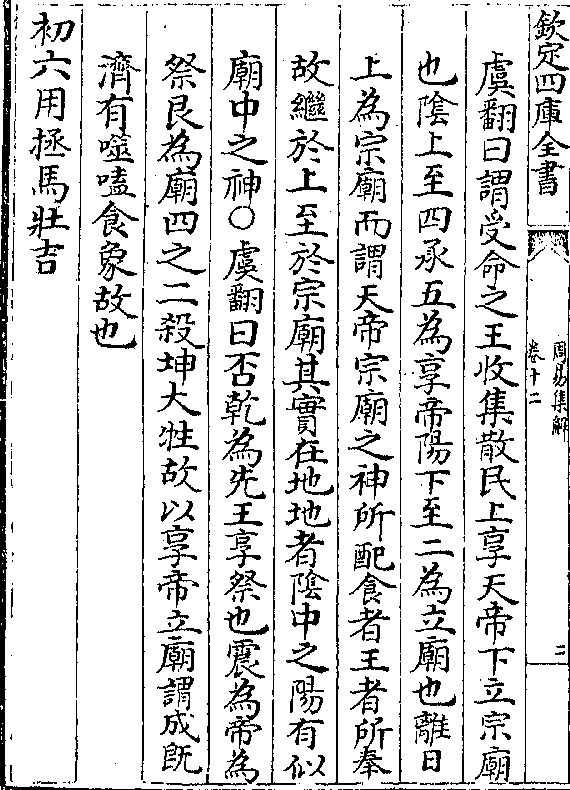 欽定四庫全書
周易集解
卷十二
二
虞翻曰謂受命之王收集散民上享天帝下立宗廟
也陰上至四承五為享帝陽下至二為立廟也離日
上為宗廟而謂天帝宗廟之神所配食者王者所奉
故繼於上至於宗廟其實在地地者陰中之陽有似
廟中之神○虞翻曰否乾為先王享祭也震為帝為
祭艮為廟四之二殺坤大牲故以享帝立廟謂成既
濟有噬嗑食象故也
初六用拯馬壯吉